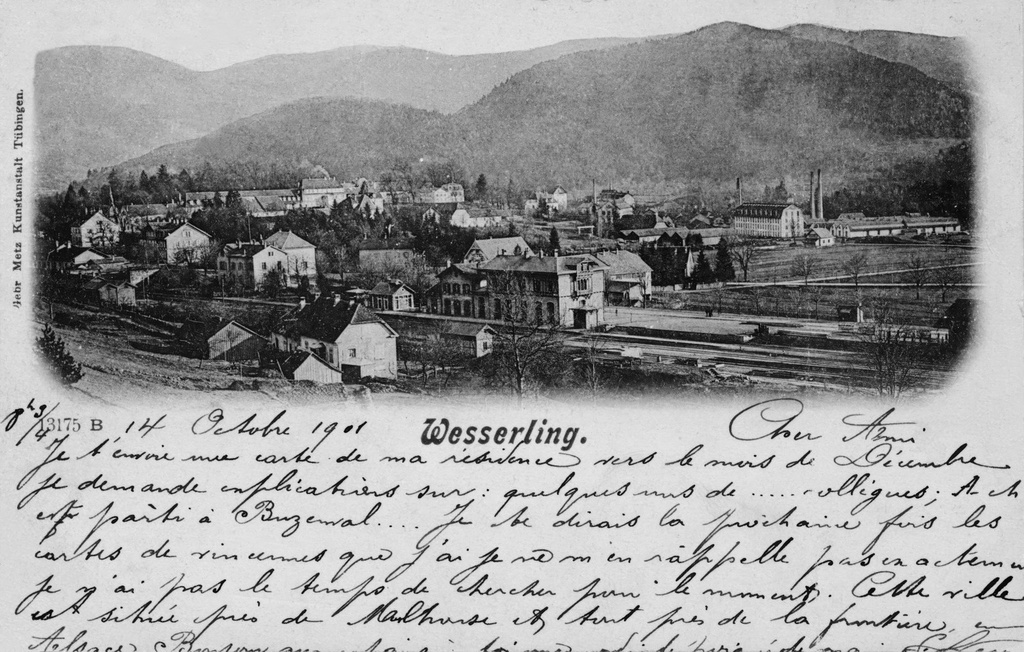 Gebr Metz Kunstanstalt Tübingen.
13175 B 14 Octobre 1901 Wesserling. Cher Ami
Je t'envoie une carte de ma résidence vers le mois de Décembre
je demande explications sur : quelques uns de ..... collègues; A ch
est parti à Buzenval.... Je te dirais la prochaine fois les
cartes de vincennes que j'ai je ne m'en rappelle pas exactem
je n'ai pas le temps de chercher pour le moment. Cette ville
est située près de Mulhouse et tout près de la frontière, en
Alsace